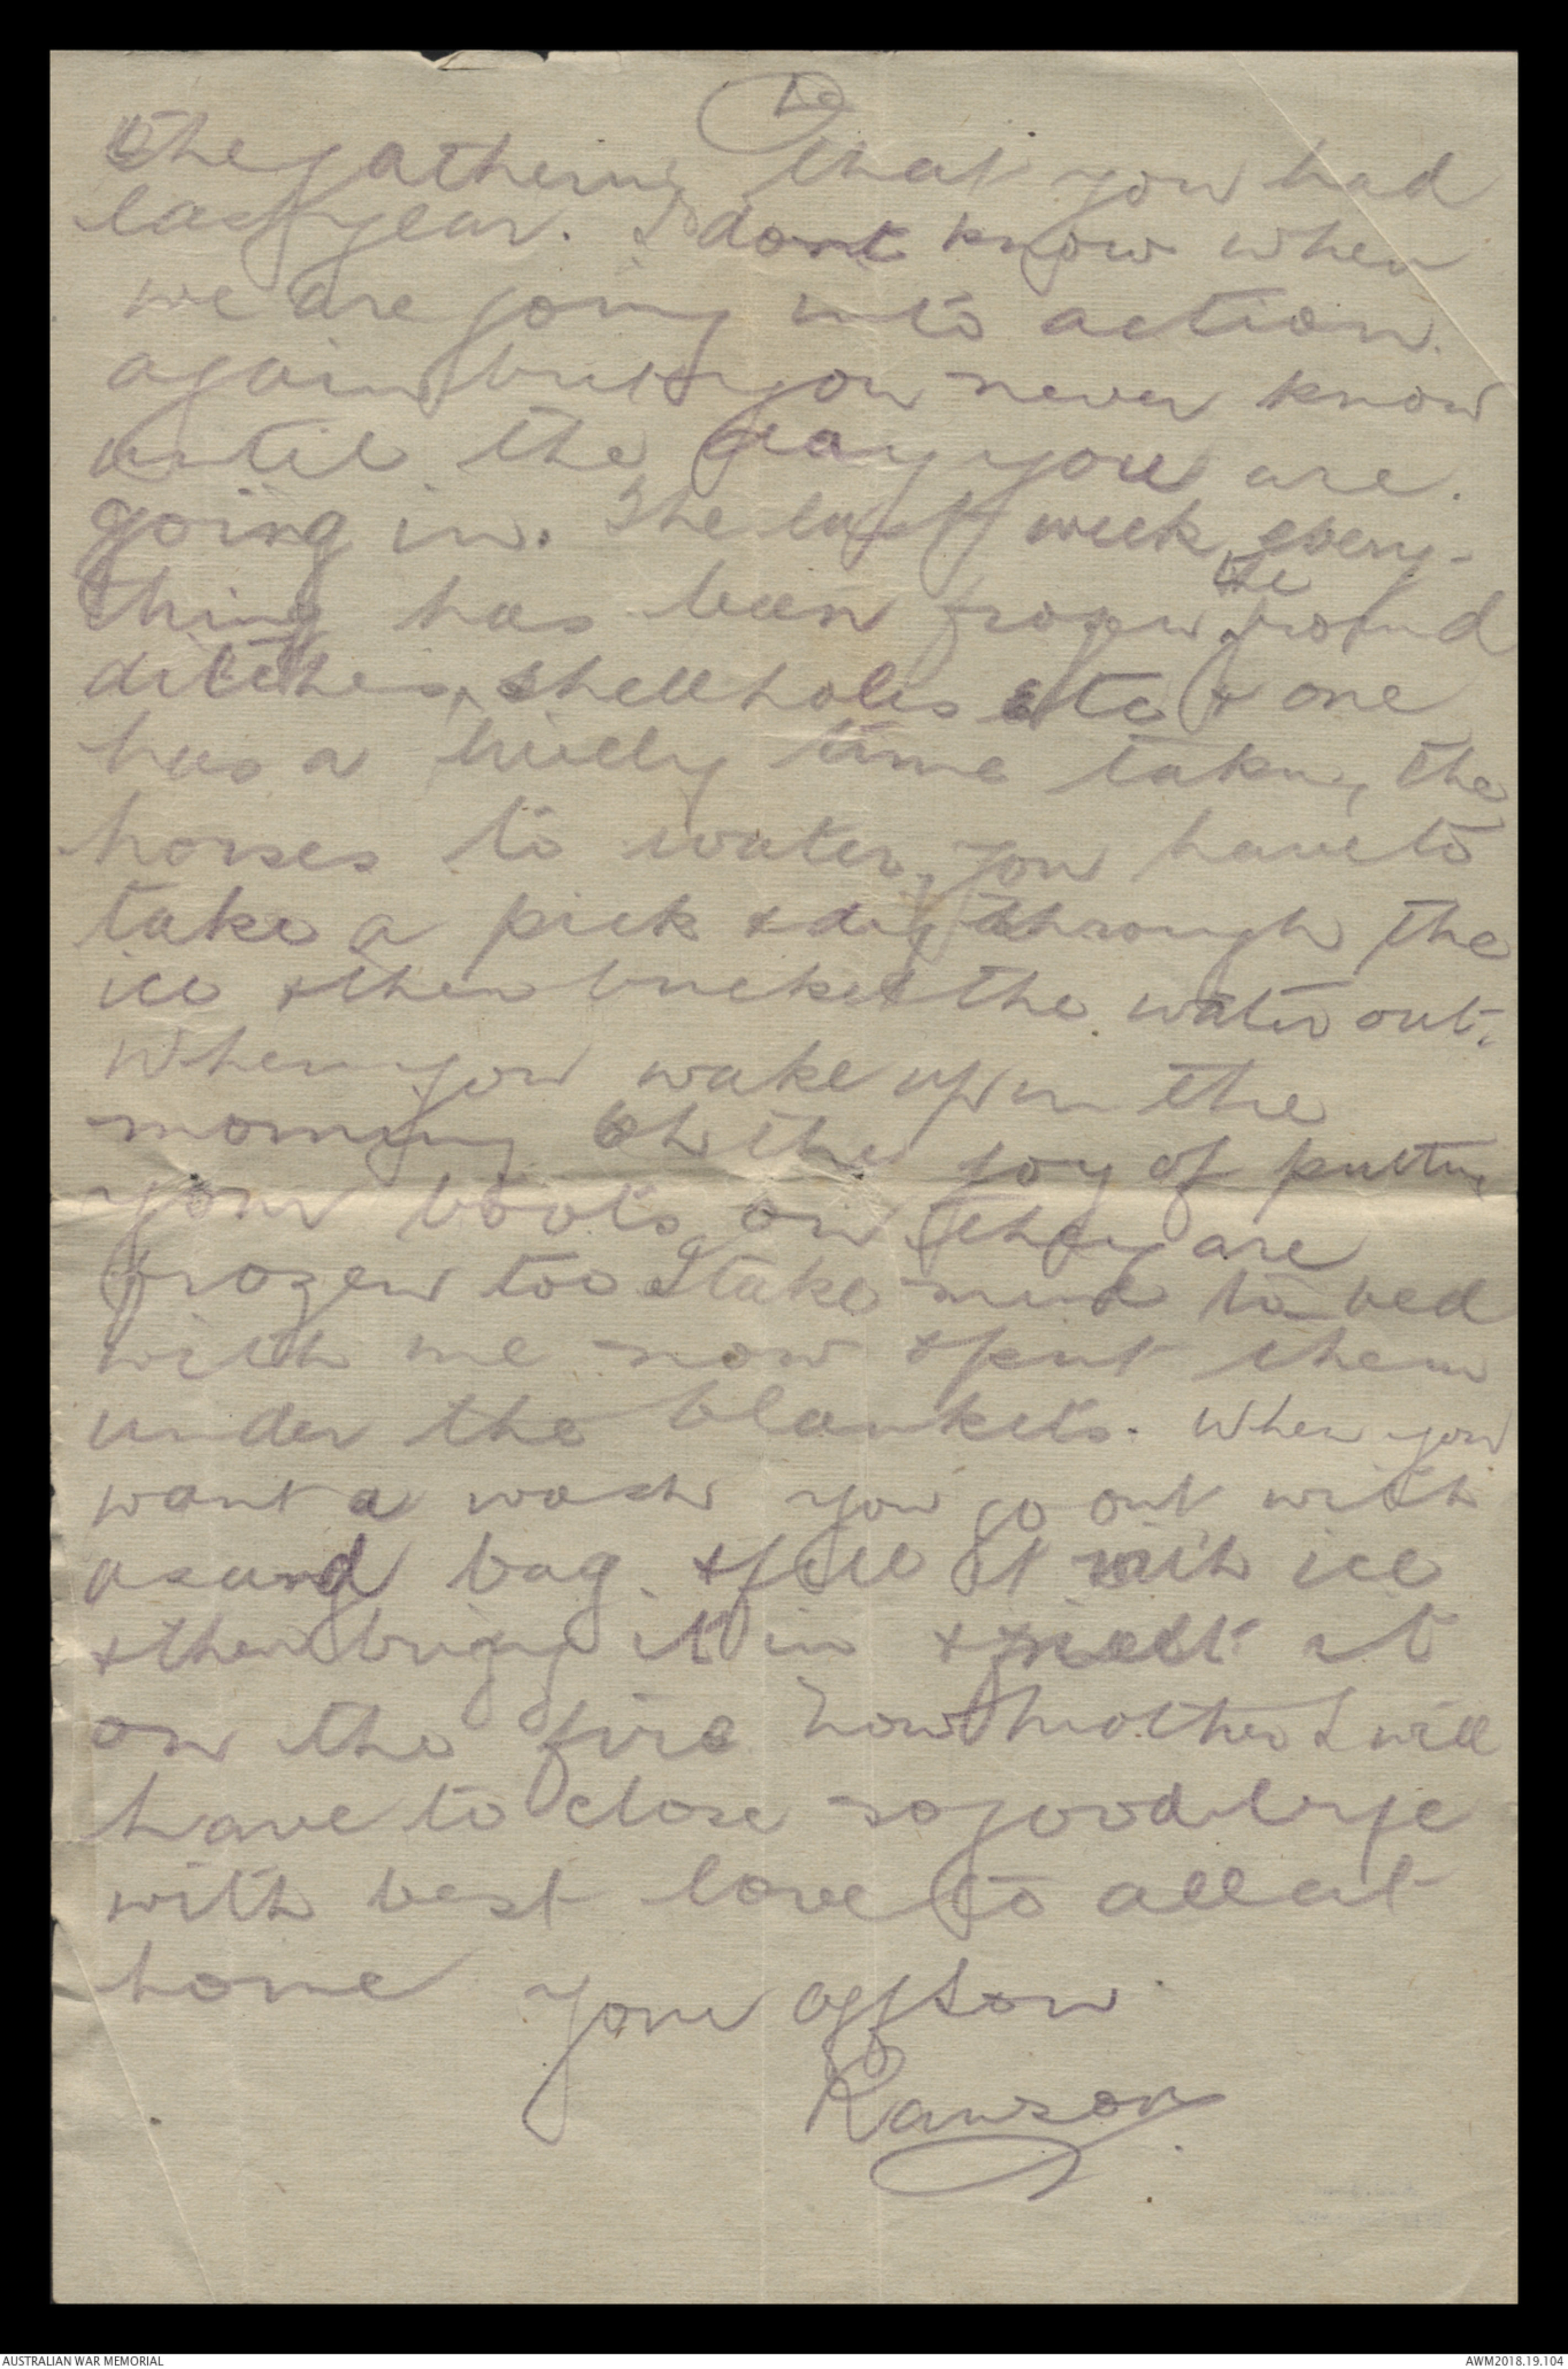 the gathering that you had
last year. I dont know when
we are going into action.
again but you never know
until the day you are.
going in. The last week every-
thing has been frozen the ground
ditches, shellholes etc & one
has a lively time taking the
horses to water, you have to
take a pick & dig through the
ice & then bucket the water out.
When you wake up in the
morning Oh the joy of putting
your boots on they are
frozen too I take mine to bed
with me now & put them
under the blankets. When you
want a wash you go out with
a sand bag & fill it with ice
& then bring it in & melt it
on the fire Now Mother I will
have to close so goodbye
with best love to all at
home your aff son
Rawson
AUSTRALIAN WAR MEMORIAL
AWM2018.19.104